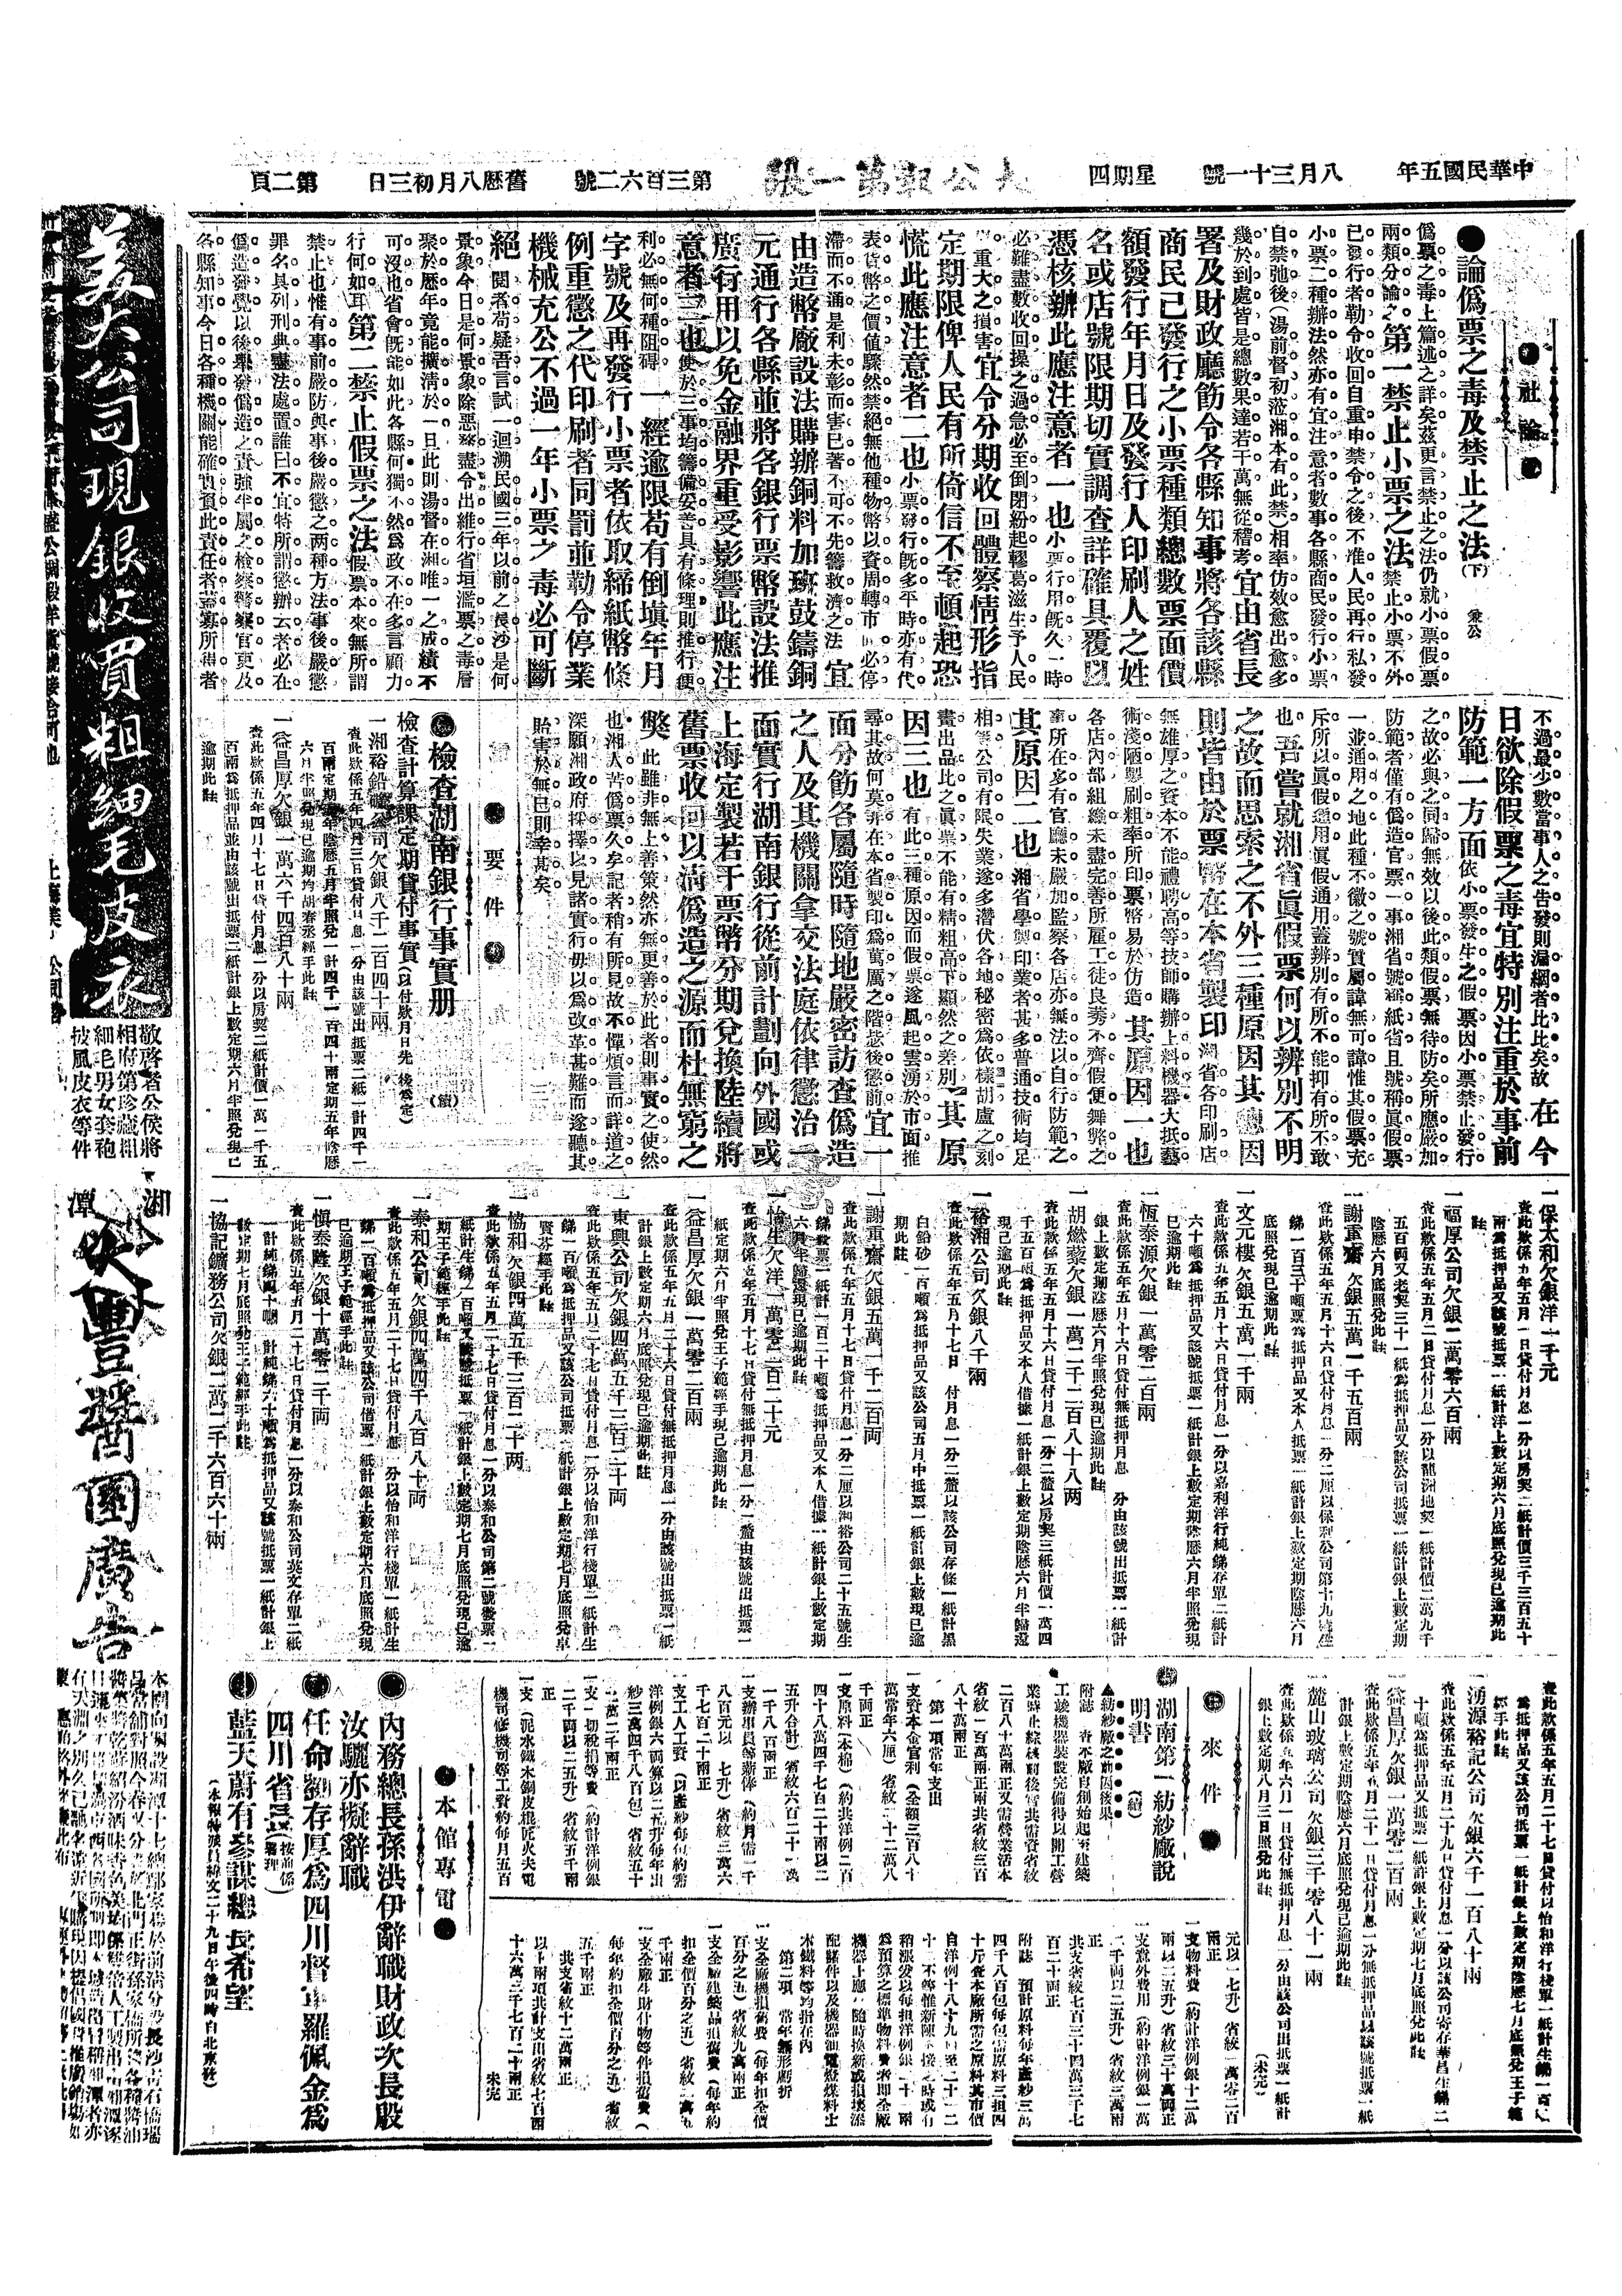 中華民國五年
八月三十一號
星期四
大公報第一張
第三百六十二號
舊歷八月初三日
第二頁
社論
●論偽票之毒及禁止之法(下)
兼公
偽票之毒上篇述之詳矣茲更言禁止之法仍就小票假票
兩類分論之第一禁止小票之法禁止小票不外
已發行者勒令收回自重申禁令之後不准人民再行私發
小票二種辦法然亦有宜注意者數事各縣商民發行小票
自禁弛後(湯前督初蒞湘本有此禁)相率仿效愈出愈多
幾於到處皆是總數果達若干萬無從稽考宜由省長
署及財政廳飭令各縣知事將各該縣
商民已發行之小票種類總數票面價
額發行年月日及發行人印刷人之姓
名或店號限期切實調查詳確具覆以
憑核辦此應注意者一也小票行用既久一時
必難盡數收回操之過急必至倒閉紛起轇葛滋生予人民
以重大之損害宜令分期收回體察情形指
定期限俾人民有所倚信不至頓起恐
慌此應注意者二也小票發行既多平時亦有代
表貨幣之價值驟然禁絕無他種物幣以資周轉市面必停
滯而不通是利未彰而害已著不可不先籌救濟之法宜
由造幣廠設法購辦銅料加班鼓鑄銅
元通行各縣並將各銀行票幣設法推
廣行用以免金融界重受影響此應注
意者三也使於三事均籌備妥善具有條理則推行便
利必無何種阻碍一經逾限苟有倒填年月
字號及再發行小票者依取締紙幣條
例重懲之代印刷者同罰並勒令停業
機械充公不過一年小票之毒必可斷
絕閱者苟疑吾言試一迴溯民國三年以前之長沙是何
景象今日是何景象除惡務盡令出維行省垣濫票之毒層
聚於歷年竟能擴清於一旦此則湯督在湘唯一之成績不
可沒也省會既能如此各縣何獨不然為政不在多言顧力
行何如耳第二禁止假票之法假票本來無所謂
禁止也惟有事前嚴防與事後嚴懲之兩種方法事後嚴懲
罪名具列刑典盡法處置誰曰不宜特所謂懲辦云者必在
偽造發覺以後舉發偽造之責強半屬之檢察警察官吏及
各縣知事今日各種機關能確負此責任者蓋寡所得者
不過最少數當事人之告發則漏網者比比矣故在今
日欲除假票之毒宜特別注重於事前
防範一方面依小票發生之假票因小票禁止發行
之故必與之同歸無效以後此類假票無待防矣所應嚴加
防範者僅有偽造官票一事湘省號稱紙省且號稱眞假票
一並通用之地此種不徽之號實屬諱無可諱惟其假票充
斥所以眞假通用眞假通用蓋辨別有所不能抑有所不敢
也吾嘗就湘省眞假票何以辨別不明
之故而思索之不外三種原因其總因
則皆由於票幣在本省製印湖省各印刷店
無雄厚之資本不能禮聘高等技師購辦上料機器大抵藝
術淺陋製刷粗率所印票幣易於仿造其原因一也
各店內部組織未盡完善所雇工徒良莠不齊假便舞弊之
事所在多有官廳未嚴加監察各店亦無法以自行防範之
其原因二也湘省學製印業者甚多普通技術均足
相等公司有限失業遂多潛伏各地秘密為依樣胡盧之刻
畫出品比之眞票不能有精粗高下顯然之差別其原
因三也有此三種原因而假票遂風起雲湧於市面推
尋其故何莫非在本省製印為萬厲之階毖後懲前宜一
面分飭各屬隨時隨地嚴密訪查偽造
之人及其機關拿交法庭依律懲治一
面實行湖南銀行從前計劃向外國或
上海定製若干票幣分期兌換陸續將
舊票收回以淸偽造之源而杜無窮之
獘此雖非無上善策然亦無更善於此者則事實之使然
也湘人苦偽票久矣記者稍有所見故不憚煩言而詳道之
深願湘政府採擇以見諸實行毋以為改革甚難而遂聽其
貽害於無已則幸甚矣
要件
檢查湖南銀行事實册
(續)
檢查計算課定期貸付事實(以付欵月日先後為定)
一湘裕鉛礦公司欠銀八千二百四十兩
查此欵係五年四月三日貸付月息一分由該號出抵票二紙一計四千一
百兩定期五年陰歷五月半照兌一計四千一百四十兩定期五年陰歷
六月半照兌現已逾期均胡春丞經手此註
一益昌厚欠銀一萬六千四百八十兩
查此欵係五年四月十七日貸付月息一分以房契二紙計價一萬一千五
百兩為抵押品並由該號出抵票二紙計銀上數定期六月半照兌現已
逾期此註
一保太和欠銀洋一千元
查此欵係五年五月一日貸付月息一分以房契二紙計價三千三百五十
兩為抵押品又該號抵票一紙計洋上數定期六月底照兌現已逾期此
註
一福厚公司欠銀二萬零六百兩
查此欵係五年五月二日貸付月息一分以龍洲地契一紙計價二萬九千
五百兩又老契三十一紙為抵押品又該公司抵票一紙計銀上數定期
陰歷六月底照兌此註
一謝重齋欠銀五萬一千五百兩
查此欵係五年五月十六日貸付月息一分二厘以保利公司第十九號生
銻一百三十噸票為抵押品又本人抵票一紙計銀上數定期陰歷六月
底照兌現已逾期此註
一文元樓欠銀五萬一千兩
查此欵係五年五月十六日貸付月息一分以嘉利洋行純銻存單二紙計
六十噸為抵押品又該號抵票一紙計銀上數定期陰歷六月半照兌現
已逾期此註
一恆泰源欠銀一萬零二百兩
查此欵係五年五月十六日貸付無抵押月息一分由該號出抵票一紙計
銀上數定期陰歷六月半照兌現已逾期此註
一胡燃藜欠銀一萬二千二百八十八兩
查此欵係五年五月十六日貸付月息一分二釐以房契三紙計價一萬四
千五百兩為抵押品又本人借據一紙計銀上數定期陰歷六月半歸還
現已逾期此註
一裕湘公司欠銀八千兩
查此欵係五年五月十七日付月息一分二釐以該公司存條一紙計黑
白鉛砂一百噸為抵押品又該公司五月中抵票一紙計銀上數現已逾
期此註
一謝重齋欠銀五萬一千二百兩
查此欵係五年五月十七日貸付月息一分二厘以湘裕公司二十五號生
銻發票一紙計一百二十噸為抵押品又本人借據一紙計銀上數定期
六月半歸還現已逾期此註
一怡生欠洋一萬零二百二十元
查此欵係五年五月十七日貸付無抵押月息一分一釐由該號出抵票一
紙定期六月半照兌王子範經手現已逾期此註
一益昌厚欠銀一萬零二百兩
查此欵係五年五月二十六日貸付無抵押月息一分由該號出抵票一紙
計銀上數定期六月底照兌現已逾期此註
一東興公司欠銀四萬五千二百二十兩
查此欵係五年五月二十七日貸付月息一分以怡和洋行棧單二紙計生
銻一百噸為抵押品又該公司抵票一紙計銀上數定期七月底照兌卓
賢芬經手此註
一協和欠銀四萬五千三百二十兩
查此欵係五年五月二十七日貸付月息一分以泰和公司第二號發票一
紙計生銻一百噸又該號抵票一紙計銀上數定期七月底照兌現已逾
期王子範經手此註
一泰和公司欠銀四萬四千八百八十兩
查此欵係五年五月二十七日貸付月息一分以怡和洋行棧單一紙計生
銻一百噸為抵押品又該公司借票一紙計銀上數定期六月底照兌現
已逾期王子範經手此註
一愼泰隆欠銀十萬零二千兩
查此欵係五年五月二十七日貸付月息一分以泰和公司英文存單二紙
一計純銻四十噸一計純銻六十噸為抵押品又該號抵票一紙計銀上
數定期七月底照兌王子範經手此註
一協記鑛務公司欠銀二萬二千六百六十兩
查此欵係五年五月二十七日貸付以怡和洋行棧單一紙計生銻一百噸
為抵押品又該公司抵票一紙計銀上數定期陰歷七月底照兌王子範
經手此註
一湧源裕記公司欠銀六千一百八十兩
查此欵係五年五月二十九日貸付月息一分以該公司寄存華昌生銻二
十噸為抵押品又抵票一紙計銀上數定期七月底照兌此註
一益昌厚欠銀一萬零二百兩
查此欵係五年五月三十一日貸付月息一分無抵押品以該號抵票一紙
計銀上數定期陰歷六月底照兌現已逾期此註
一麓山玻璃公司欠銀三千零八十一兩
查此欵係五年六月一日貸付無抵押月息一分由該公司出抵票一紙計
銀上數定期八月三日照兌此註
(未完)
來件
湖南第一紡紗廠說
明書
(續)
▲紡紗廠之前因後果
附誌 查本廠自創始起至建築
工竣機器裝設完備得以開工營
業時止綜核前後實共需資省紋
二百八十萬兩正又需營業活本
省紋一百萬兩正兩共省紋三百
八十萬兩正
第一項常年支出
一支資本金官利(全額三百八十
萬常年六厘)省紋二十二萬八
千兩正
一支原料(本棉)(約共洋例二百
四十八萬四千七百二十兩以二
五升合計)省紋六百二十一萬
一千八百兩正
一支辦事員等薪俸(約月需一千
八百元以一七升)省紋二萬六
千七百二十兩正
一支工人工資(以產紗每包約需
洋例銀六兩算以二五升每年出
紗三萬四千八百包)省紋五十
二萬二千兩正
一支一切稅捐等費(約計洋例銀
二千兩以二五升)省紋五千兩
正
一支(泥水鐵木銅皮棍匠火夫電
機司修機司等工資約每月五百
元以一七升)省紋一萬零二百
兩正
一支物料費(約計洋例銀十二萬
兩以二五升)省紋三十萬兩正
一支意外費用(約計洋例銀一萬
二千兩以二五升)省紋三萬兩
正
共支省紋七百三十四萬三千七
百二十兩正
附誌 預計原料每年產紗三萬
四千八百包每包需原料三担四
十斤查本廠所需之原料其市價
自洋例十八十九兩至二十二
十三不等惟新陳不接之時或有
稍漲茲以每担洋例銀二十一兩
為預算之標準物料費者即全廠
機器上應行隨時換新或損壞添
配儲件以及機器油電燈煤料土
木鐵料等均括在內
第二項 常年無形虧折
一支全廠機損舊費(每年扣全價
百分之五)省紋九萬兩正
一支全廠建築品損舊費(每年約
扣全價百分之五)省紋二萬五
千兩正
一支全廠生財什物等件損舊費(
每年約扣全價百分之五)省紋
五千兩正
共支省紋十二萬兩正
以上兩項共計支出省紋七百四
十六萬三千七百二十兩正
未完
本館專電
●內務總長孫洪伊辭職財政次長殷
汝驪亦擬辭職
●任命劉存厚為四川督軍羅佩金為
四川省長(按前係署理)
●藍天蔚有參謀總長希望
(本報特派員綠文二十九日午後四時自北京發)
美大公司現銀收買粗細毛皮衣
敬啓者公侯將
相府第珍藏粗
細毛男女套袍
披風皮衣等件
湘潭
豐醬園廣告